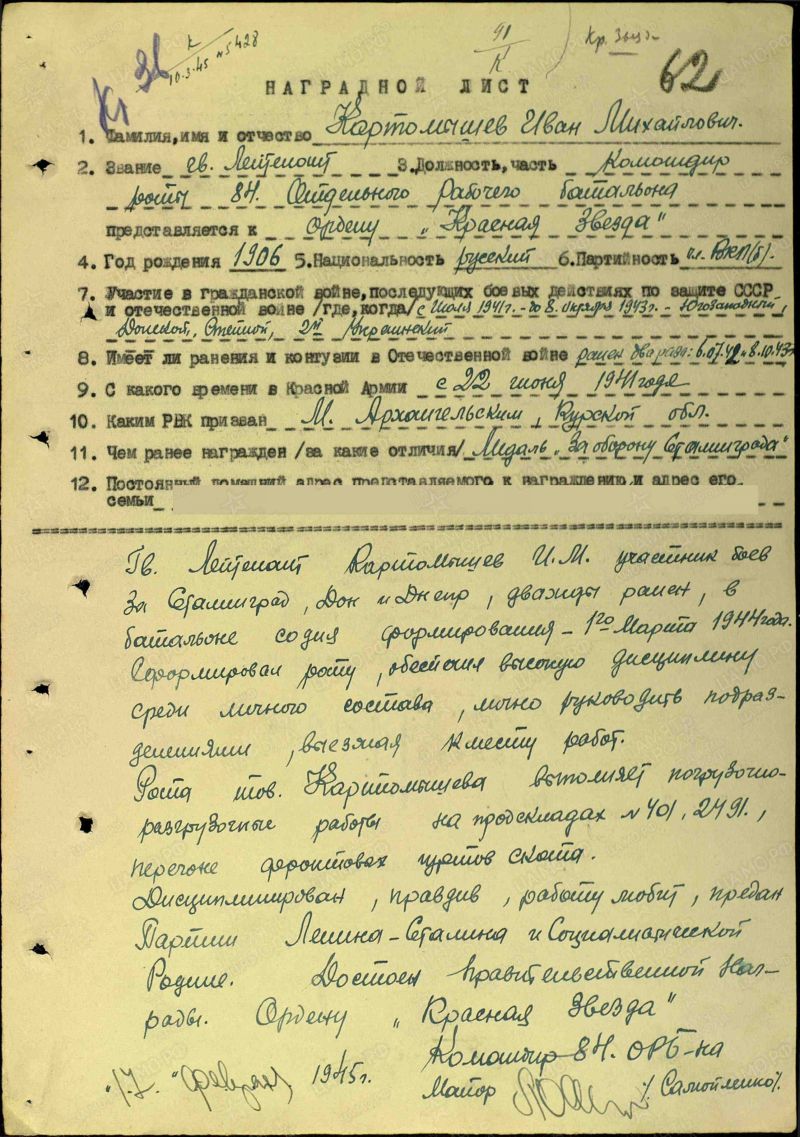 К
10.3.45 №5428
91
К
Кр. Звезд
62
НАГРАДНОЙ ЛИСТ
1. Фамилия, имя и отчество Картомышев Иван Михайлович.
2. Звание гв. Лейтенант 3. Должность, часть Командир
роты 84. Отдельного Рабочего батальона
представляется к Ордену „Красная Звезда"
4. Год рождения 1906 5. Национальность русский 6. Партийность чл. ВКП(б).
7. Участие в гражданской войне, последующих боевых действиях по защите СССР
и отечественной войне /где, когда/ с Июля 1941г. - до 8. октября 1943г. - Югозападный,
Донской, Степной, 2й Украинский
8. Имеет ли ранения и контузии в Отечественной войне ранен два раза: 6.07.42 и 8.10.43г
9. С какого времени в Красной Армии с 22 июня 1941 года
10. Каким РВК призван М. Архангельским, Курской обл.
11. Чем ранее награжден /за какие отличия/ Медаль „За оборону Сталинграда"
12. Постоянный домашний адрес представляемого к награждению и адрес его
семьи
Гв. Лейтенант Картомышев И.М. участник боев
за Сталинград, Дон и Днепр, дважды ранен, в
батальоне со дня формирования - 1го Марта 1944 года.
Сформировал роту, обеспечил высокую дисциплину
среди личного состава, лично руководить подраз-
делениями, выезжая к месту работ.
Рота тов. Картомышева выполняет погрузочно-
разгрузочные работы на продскладах №401, 2491,
перегоне фронтовых гуртов скота.
Дисциплинирован, правдив, работу любит, предан
Партии Ленина-Сталина и Социалистической
Родине. Достоен правительственной наг-
рады. Ордену „Красная Звезда"
Командир 84. ОРБ-на
"17." февраля 1945г. Майор /Самойленко/.